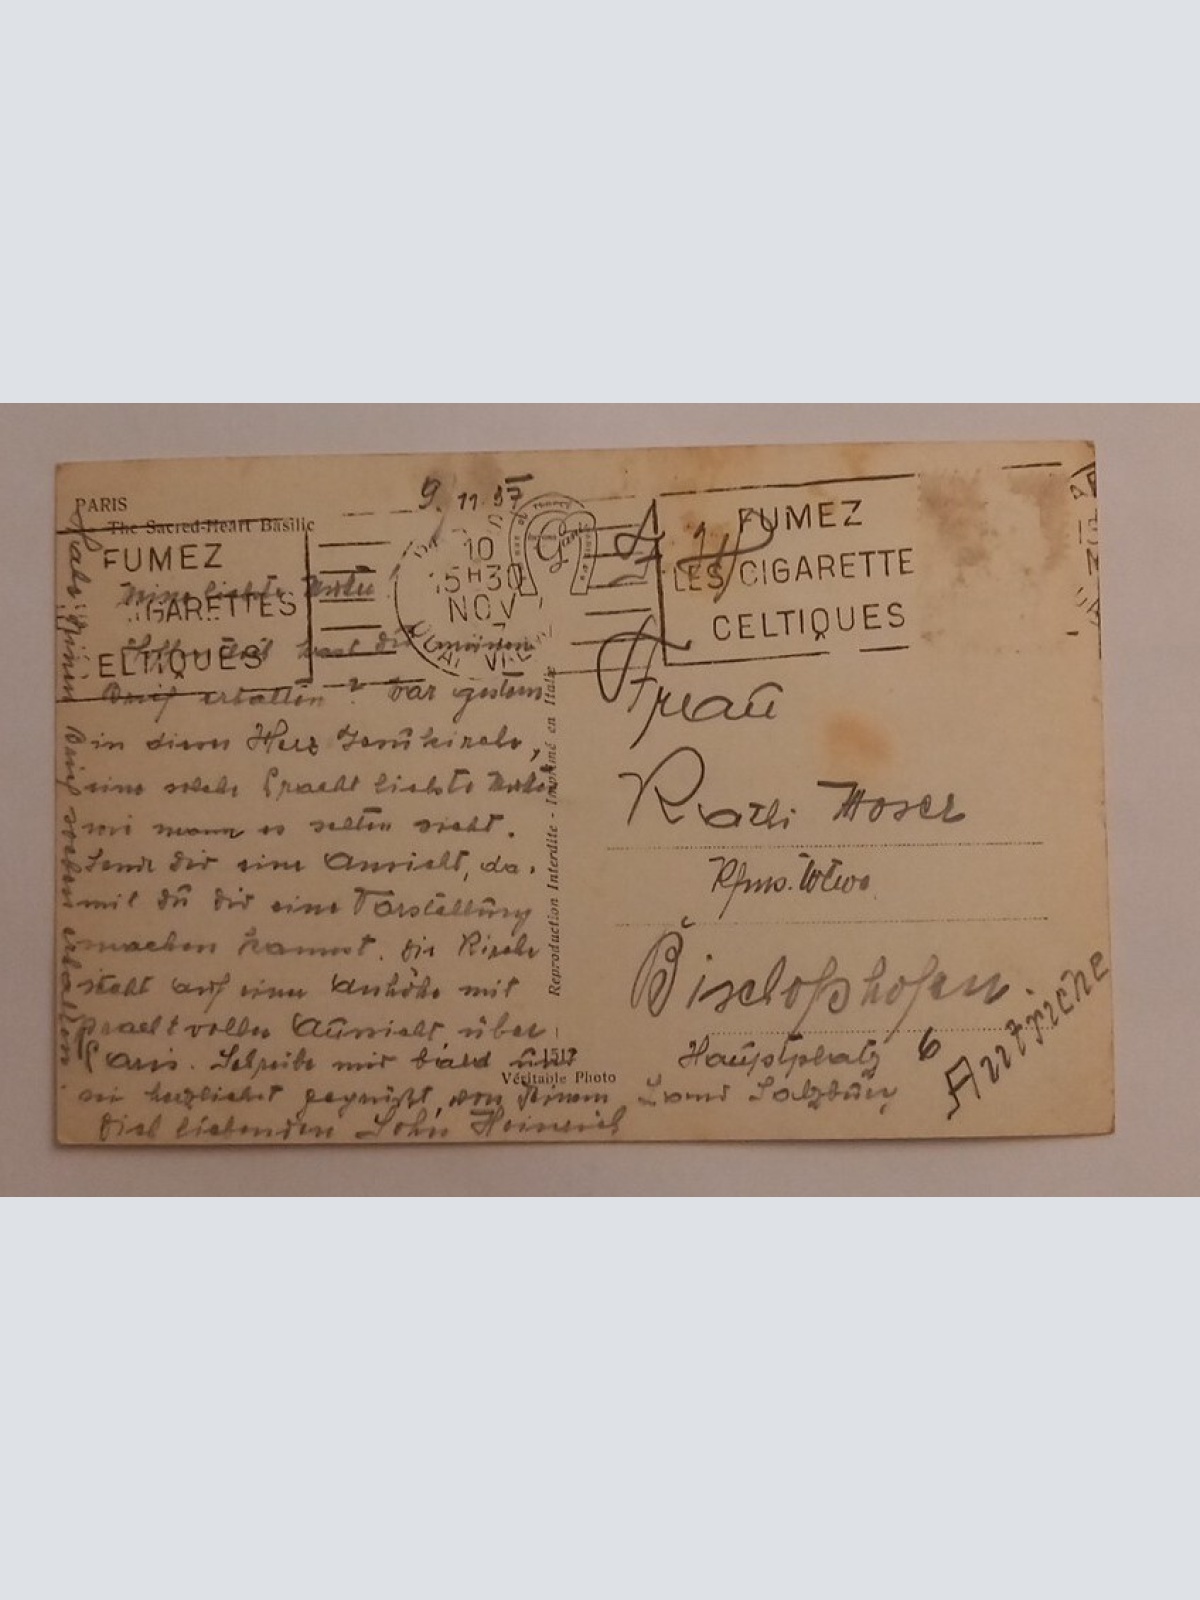 PARIS
The Sacred-Heart Basilic
9. 11. 37
FUMEZ
IGARETTES
ELTIQUES
10
15H30
NOV
FUMEZ
LES CIGARETTE
CELTIQUES
Meine liebste Mutti
hast du meinen
Brief erhalten? War gestern
in dieser Herz Jesukirche,
eine solche Pracht liebste Mutti
wie mann es selten sieht.
Sende dir eine Ansicht, da-
mit dū dir eine Vorstellūng
machen kannst. die Kirche
steht auf einer Anhöhe mit
prachtvoller Aūssicht über
Paris. Schreibe mir bald und
sei herzlichst gegrüßt, von Deinem
Dich liebenden Sohn Heinrich
Habe deinen Brief soeben erhalten.
Reproduction Interdite - Imprimé en Italie
1517
Véritable Photo
Fraū
Kathi Moser
Kfms. Wtwe.
Bischofshofen.
Haūptplatz 6
Land Salzbūrg
Autriche